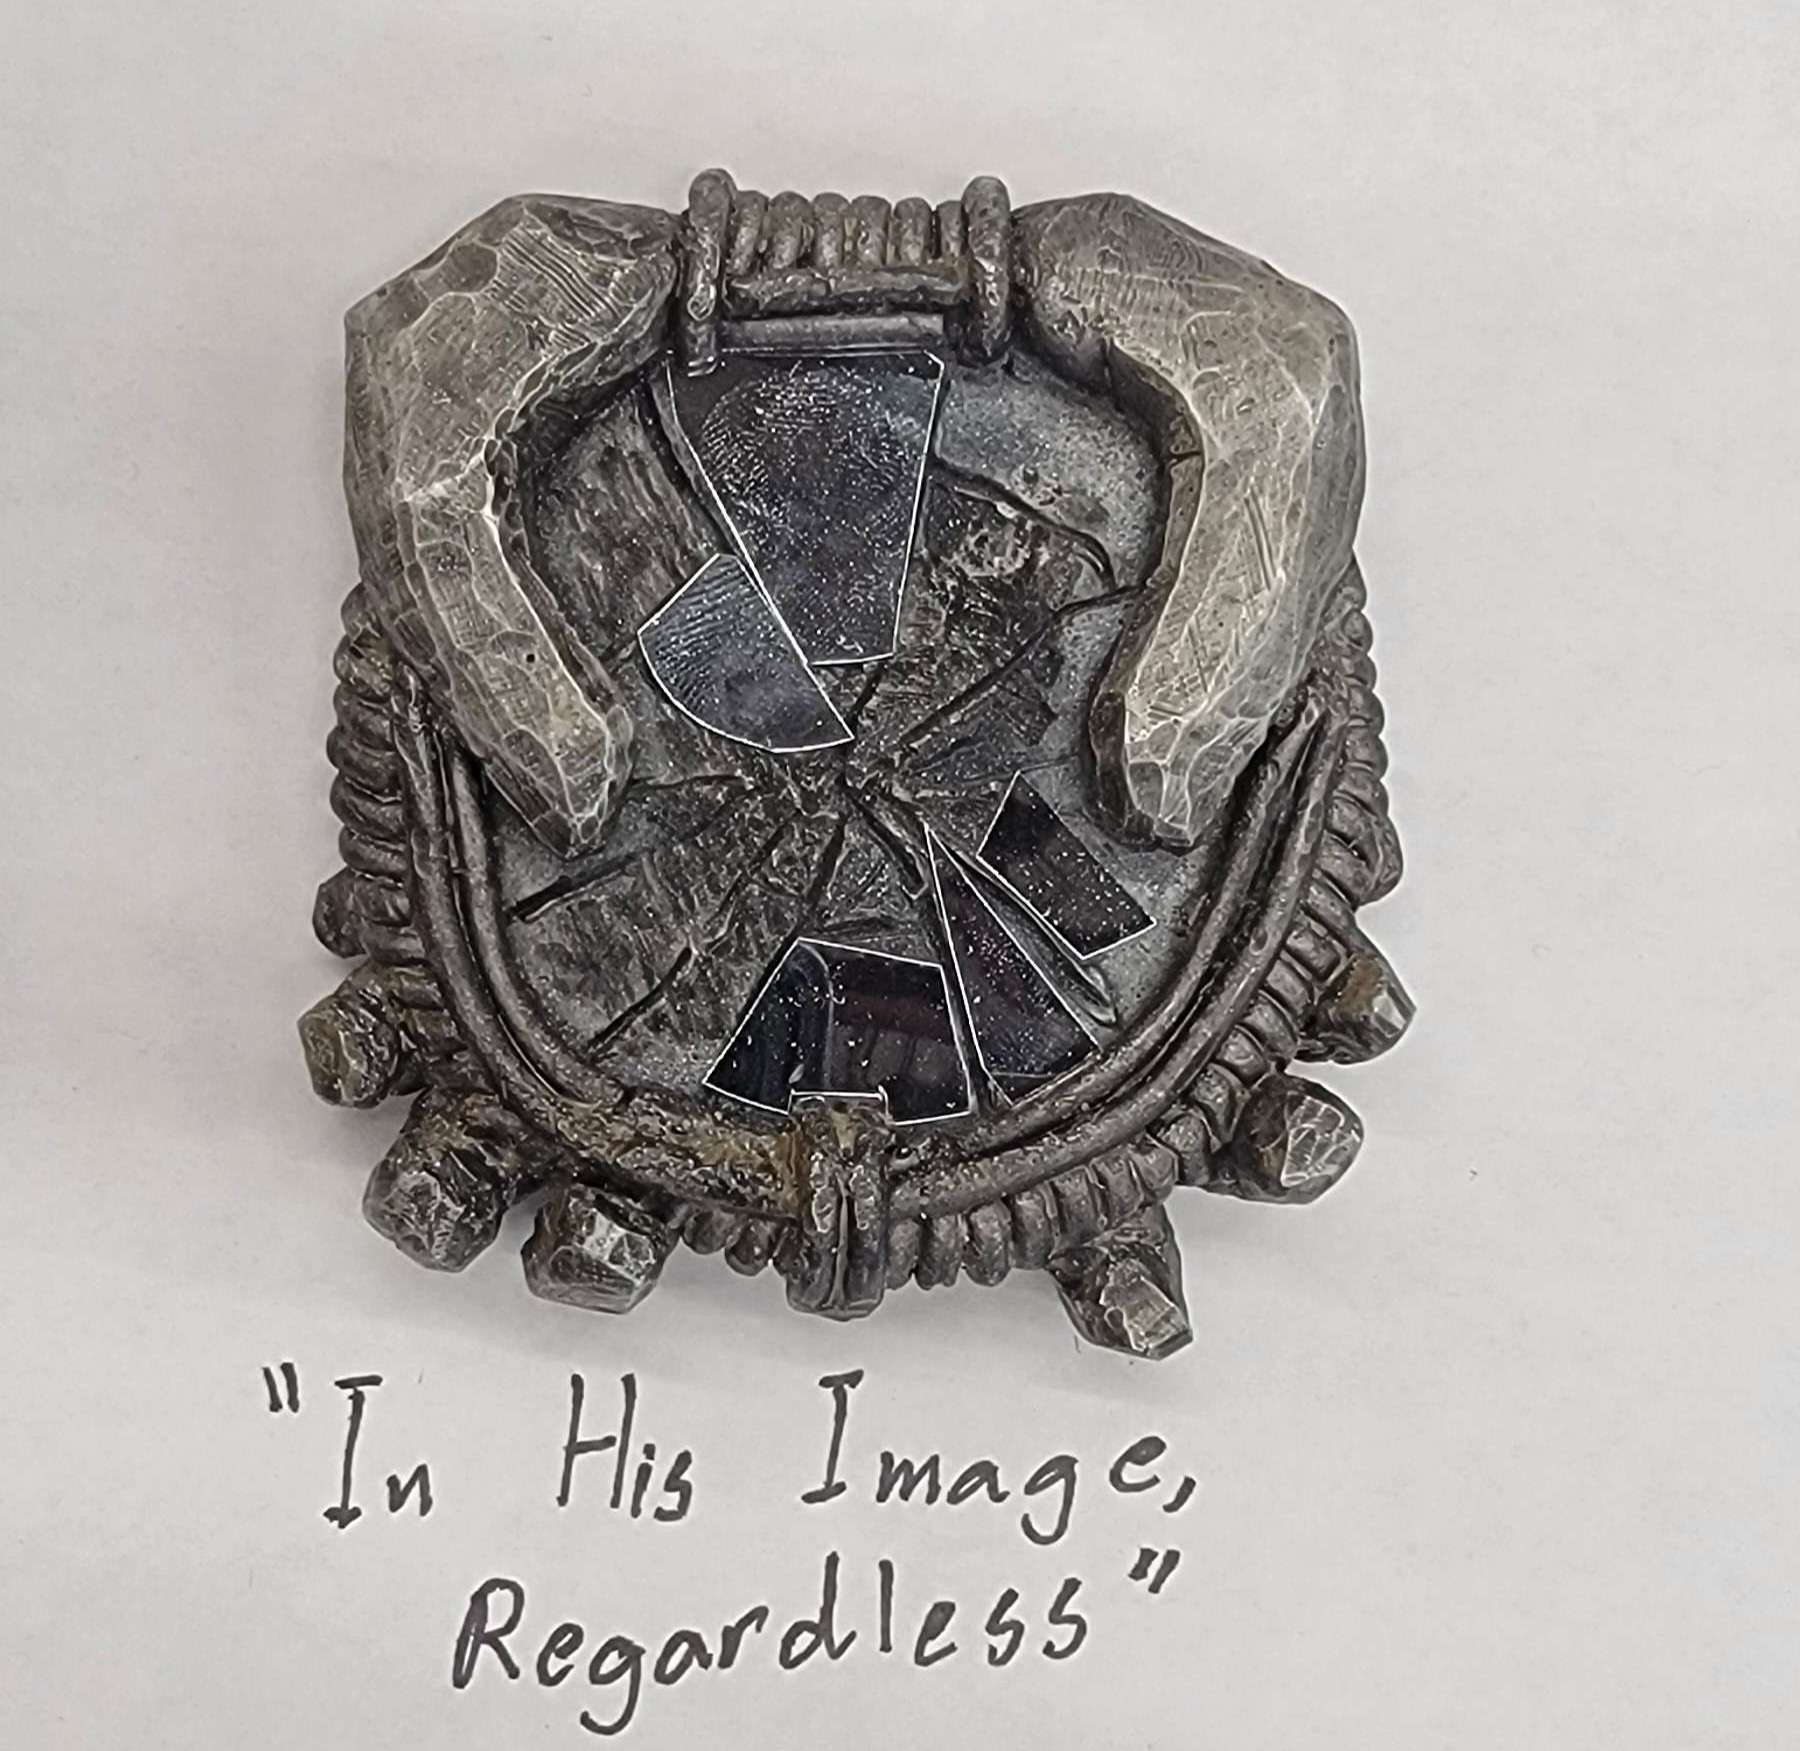 "In His Image,
Regardless"